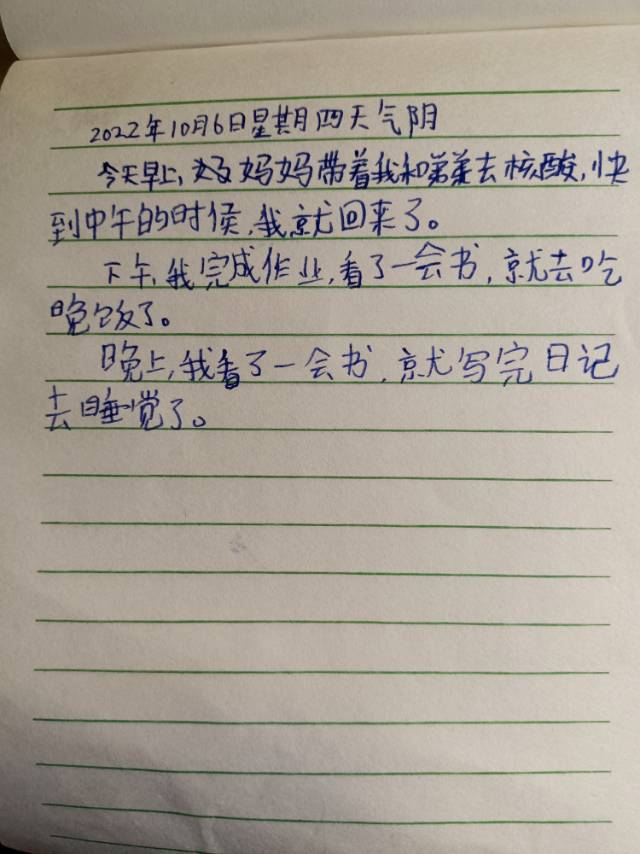 2022年10月6日星期四天气阴
今天早上,妈妈带着我和弟弟去核酸,快
到中午的时候,我就回来了。
下午,我完成作业,看了一会书,就去吃
晚饭了。
晚上,我看了一会书,就写完日记
去睡觉了。